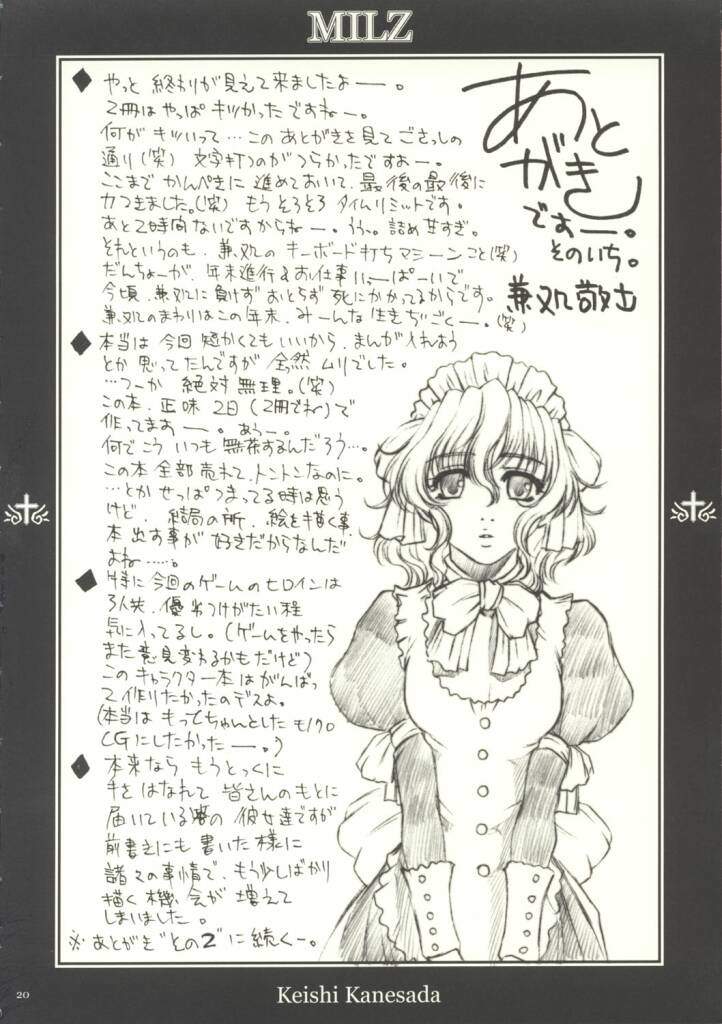 MILZ
あとがきですぉー。
そのいち。
兼処敬士
◆やっと 終わりが見えて来ましたよー。
2冊はやっぱ キツかったですねー。
何がキツいって…このあとがきを見てごさっしの
通り(笑) 文字打つのがつらかったですぉー。
ここまで かんぺきに 進めておいて、最後の最後に
力つきました。(笑) もう そろそろ タイムリミットです。
あと2時間ないですからねー。うぅっ。詰め甘すぎ。
それというのも、兼処の キーボード打ちマシーンこと(笑)
だんちょーが、年末進行&お仕事いっーぱーいで
今頃、兼処に負けず おとらず 死にかかってるからです。
兼処のまわりはこの年末、みーんな 生きぢごくー。(笑)
◆本当は 今回 短かくてもいいから、まんが入れよう
とか 思ってたんですが 全然 ムリでした。
…つーか 絶対 無理。(笑)
この本、正味 2日 (2冊でね)で
作ってますぉー。あぅー。
何でこう いつも 無茶するんだろう…。
この本 全部 売れて、トントンなのに。
…とか せっぱつまってる時は思う
けど、結局の所、絵を描く事
本 出す事が 好きだからなんだ
よね……。
◆特に 今回のゲームのヒロインは
3人共、優劣つけがたい程
気に入ってるし。(ゲームをやったら
また 意見変わるかもだけどぅ)
このキャラクター本は がんばっ
て 作りたかったのデスよ。
(本当は もっとちゃんとした モノクロ
CGにしたかったー。)
◆本来なら もうとっくに
手を はなれて 皆さんのもとに
届いている筈の 彼女達ですが
前書きにも 書いた様に
諸々の事情で、もう少しばかり
描く機会が 増えて
しまいました。
※あとがき"その2"に続くー。
20
Keishi Kanesada